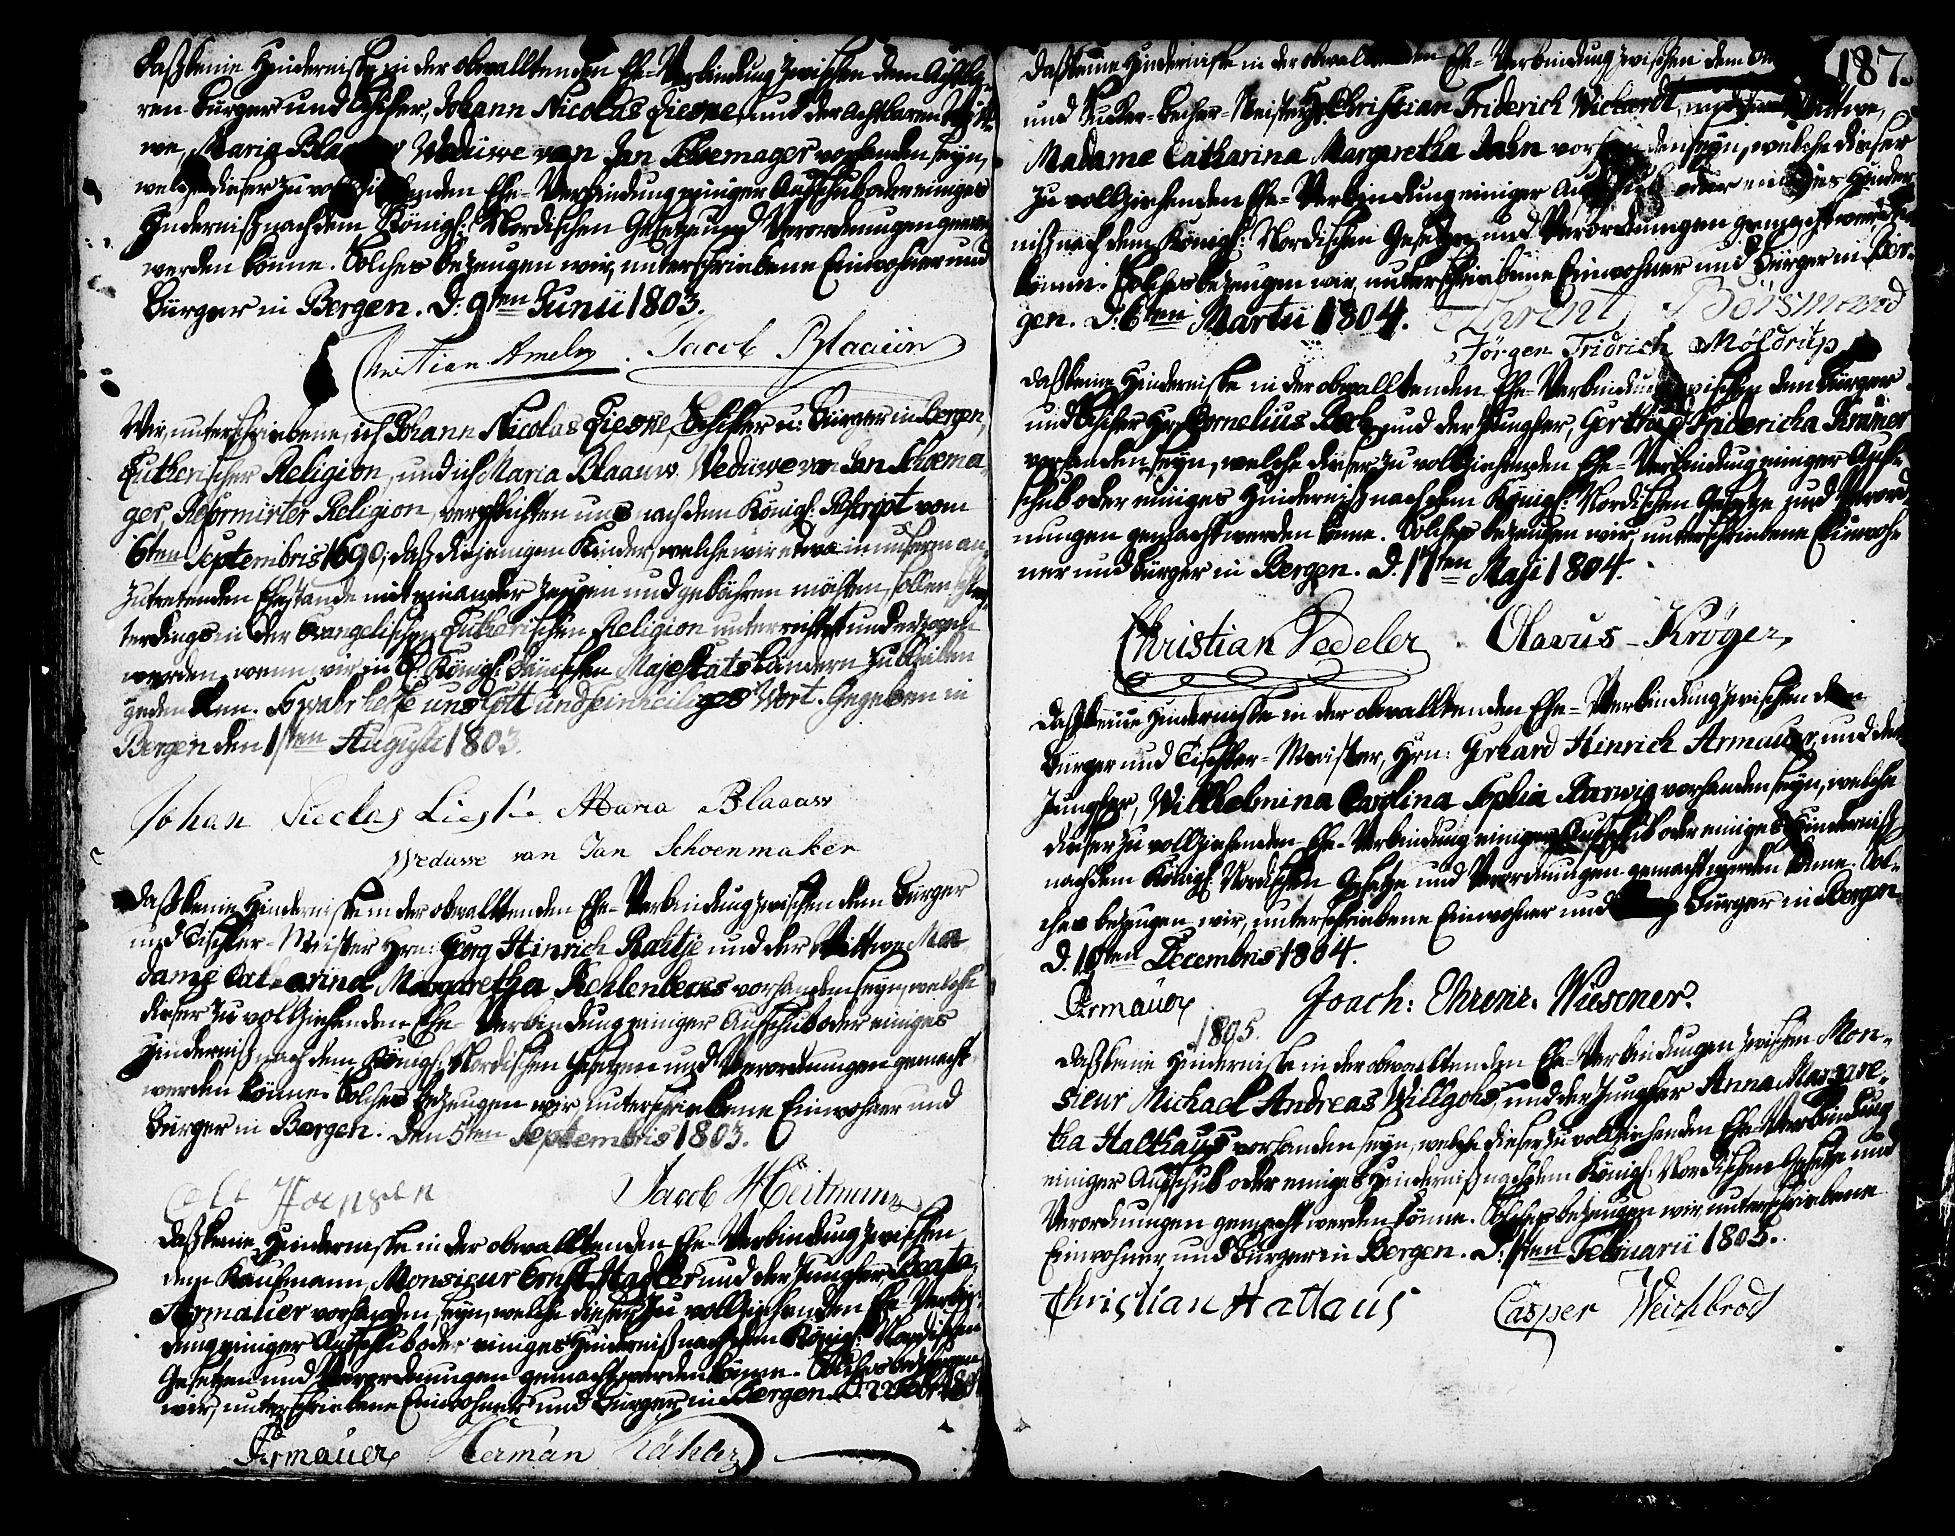 Daß keine Hindernisse in der obwalltenden Ehe-Verbindung zwischen dem Achtba-
ren Bürger und Schiffer, Johann Nicolas Lieske, und der Achtbaren Witt-
we, Maria Blaauw Weduwe van Jan Schoemager vorhanden seyn,
welche dieser zu vollziehenden Ehe-Verbindung einiger Aufschub oder einiges
Hinderniß nach dem Königl: Nordischen Gesetze und Verordnungen gemacht
werden könne. Solches bezeugen wir, unterschriebene Einwohner und
Bürger in Bergen. D: 9ten Junii 1803.
Christian Ameln. Jacob Blaauw
Wir, unterschriebene, ich Johann Nicolas Lieske, Schiffer u: Bürger in Bergen,
Lutherischer Religion, und ich Maria Blaauw Weduwe van Jan Schoema-
ger, Reformirter Religion, verpflichten uns nach dem Königl: Rescript vom
6ten Septembris 1690, daß diejenigen Kinder, welche wir etwa in unserm an-
zutretenden Ehestande mit einander zeugen und gebähren möchten, sollen
terdings in der Evangelischen Lutherischen Religion unterrichtet und erzogen
werden, wenn wir in Königl: Dänischen Majestäts Ländern zu bleiben
gedenken. So wahr helfe uns Gott und sein heiliges Wort. Gegeben in
Bergen den 1sten Augusti 1803.
Johan Lieske Maria Blaauw
Weduwe van Jan Schoenmaker
Daß keine Hindernisse in der obwalltenden Ehe-Verbindung zwischen dem Bürger
und Tischler-Meister Hrn: Georg Hinrich Rahtje und der Wittwe Ma-
dame Catharina Margaretha Kehlenbecks vorhanden seyn, welche
dieser zu vollziehenden Ehe-Verbindung einiger Aufschub oder einiges
Hinderniß nach dem Königl: Nordischen Gesetzen und Verordnungen gemacht
werden könne. Solches bezeugen wir unterschriebene Einwohner und
Bürger in Bergen. den 5ten Septembris 1803.
Jacob Heitmann
Daß keine Hindernisse in der obwalltenden Ehe-Verbindung zwischen
dem Kaufmann, Monsieur Ernst und der Jungfer, Beata
Armauer vorhanden seyn, welche dieser zu vollziehenden Ehe-Verbin-
dung einiger Aufschub oder einiges Hinderniß nach dem Königl: Nordischen
Gesetzen und Verordnungen gemacht werden könne. Solches bezeugen
wir, unterschriebene Einwohner und Bürger in Bergen.
Armauer Herman
187.
Daß keine Hindernisse in der obwalltenden Ehe-Verbindung zwischen dem
und Zucker-Becker-Meister Hr: Christian Friderich Wickardt, und der Wittwe,
Madame Catharina Margaretha Jahn vorhanden seyn, welche dieser
zu vollziehenden Ehe-Verbindung einiger Aufschub oder einiges Hinder-
niß nach dem Königl: Nordischen Gesetze und Verordnungen gemacht werden
könne. Solches bezeugen wir, unterschriebene Einwohner und Bürger in Ber-
gen. D: 6ten Martii 1804. Ahrent Börsmand
Jörgen Fridrich Möldrup
Daß keine Hindernisse in der obwalltenden Ehe-Verbindung zwischen dem Bürger
und Schiffer Hr: Cornelius und der Jungfer, Gerthrud Fridericha Krämer
vorhanden seyn, welche dieser zu vollziehenden Ehe-Verbindung einiger Auf-
schub oder einiges Hinderniß nach dem Königl: Nordischen Gesetze und Verord-
nungen gemacht werden könne. Solches bezeugen wir, unterschriebene Einwoh-
ner und Bürger in Bergen. D: 17ten Maji 1804.
Christian Vedeler Olavus Krøger
Daß keine Hindernisse in der obwalltenden Ehe-Verbindung zwischen dem
Bürger und Tischler-Meister, Hrn: Gerhard Hinrich Armauer, und der
Jungfer, Willhelmina Carolina Sophia Barwig vorhanden seyn, welche
dieser zu vollziehenden Ehe-Verbindung einiger Aufschub oder einiges Hinderniß
nach dem Königl: Nordischen Gesetze und Verordnungen gemacht werden könne. Sol-
ches bezeugen wir, unterschriebene Einwohner und Bürger in Bergen
D: 10ten Decembris 1804.
Armauer Joach: Ehrenr. Wiesener.
1805.
Daß keine Hindernisse in der obwalltenden Ehe-Verbindungen zwischen Mon-
sieur Michael Andreas Willgohs, und der Jungfer Anna Margre-
tha Halthaus vorhanden seyn, welche dieser zu vollziehenden Ehe-Verbindung
einiger Aufschub oder einiges Hinderniß nach dem Königl: Nordischen Gesetze und
Verordnungen gemacht werden könne. Solches bezeugen wir unterschriebene
Einwohner und Bürger in Bergen. D: 1sten Februarii 1805.
Christian Hattaus Casper Weichbrod